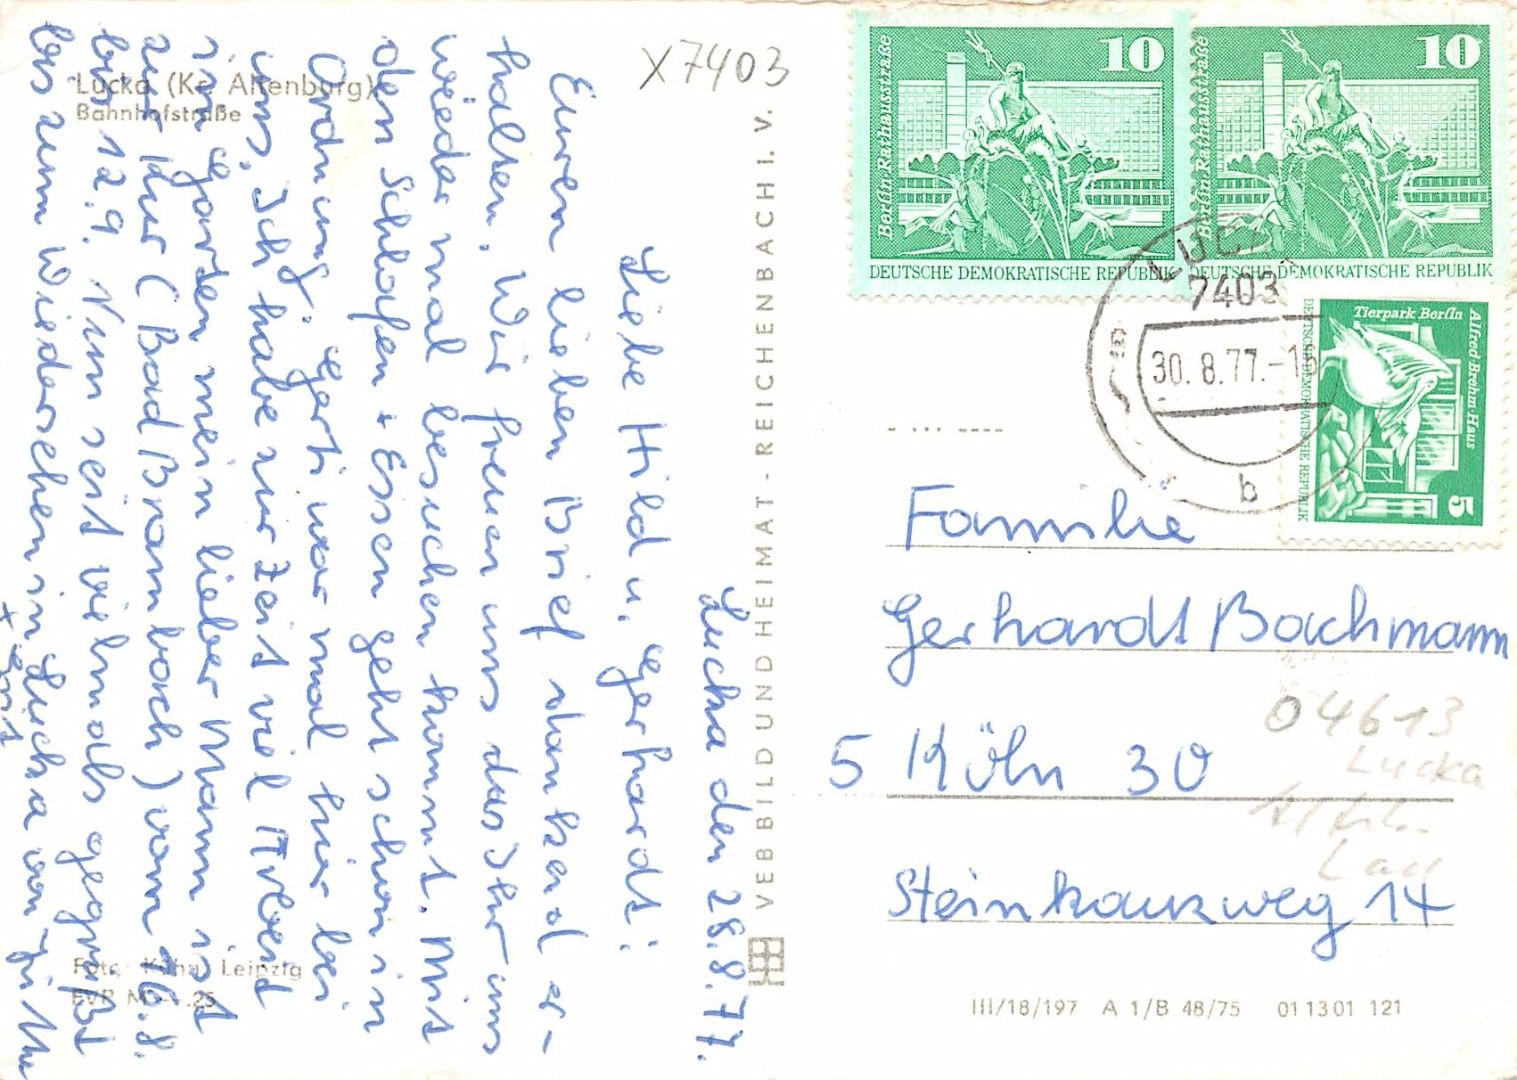 Lucka (Kr. Altenburg)
Bahnhofstraße
X7403
Lucka den 28.8.77.
Liebe Hild u. Gerhardt!
Euren lieben Brief dankend er-
halten. Wir freuen uns das Ihr uns
wieder mal besuchen kommt. Mit
den Schlafen + Essen geht schon in
Ordnung. Gerti war mal hier bei
uns. Ich habe zur Zeit viel Arbeit
im Garten mein lieber Mann ist
zur Kur (Bad Brambach) vom 16.8.
bis 12.9. Nun seit vielmals gegrüßt
bis zum Wiedersehen in Lucka von
Foto: Kühn, Leipzig
EVP M -.25
VEB BILD UND HEIMAT - REICHENBACH I. V.
10
Berlin-Rathausstraße
DEUTSCHE DEMOKRATISCHE REPUBLIK
10
Berlin-Rathausstraße
DEUTSCHE DEMOKRATISCHE REPUBLIK
Tierpark Berlin
Alfred-Brehm-Haus
DEUTSCHE DEMOKRATISCHE REPUBLIK
5
7403
30.8.77.-
b
Familie
Gerhardt Bachmann
5 Köln 30
Steinkauzweg 14
04613
Lucka
III/18/197 A 1/B 48/75 01 13 01 121